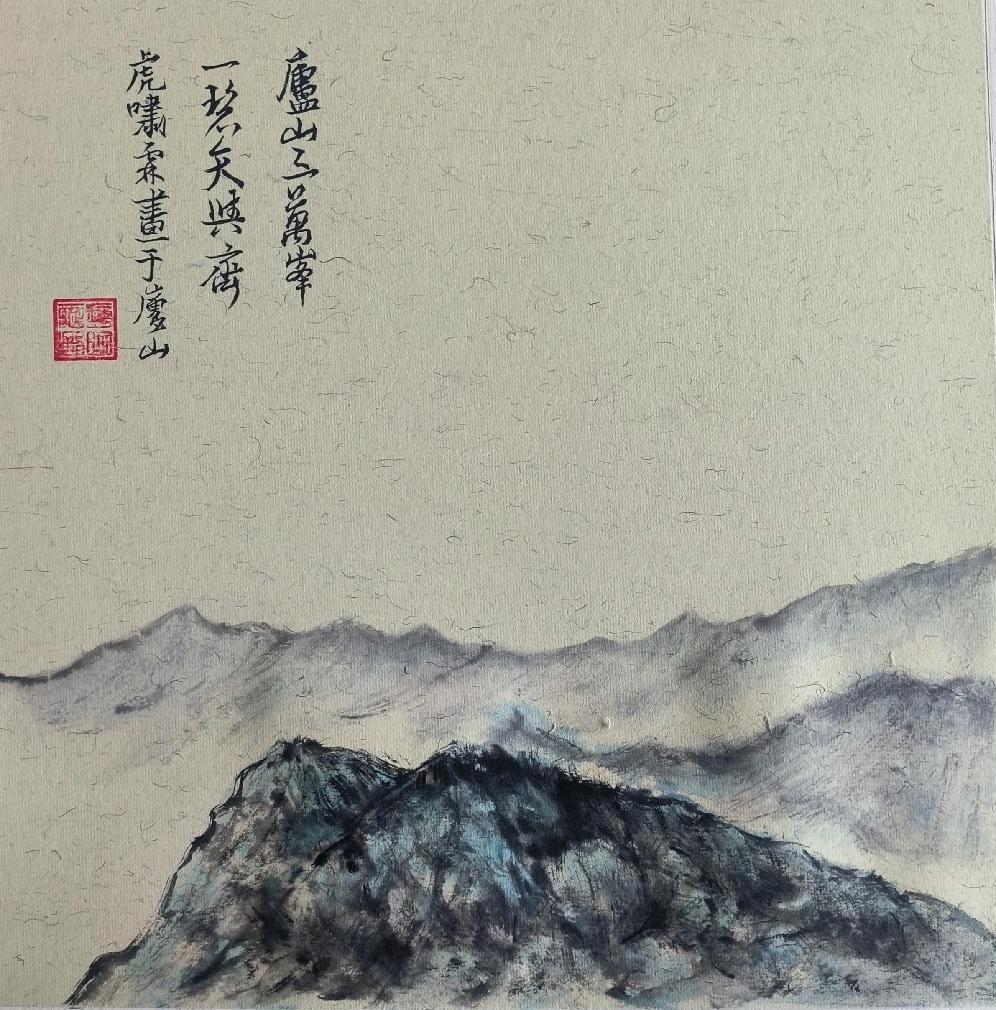 廬山三萬峯
一碧矢與齊
虎嘯霖畫于廬山